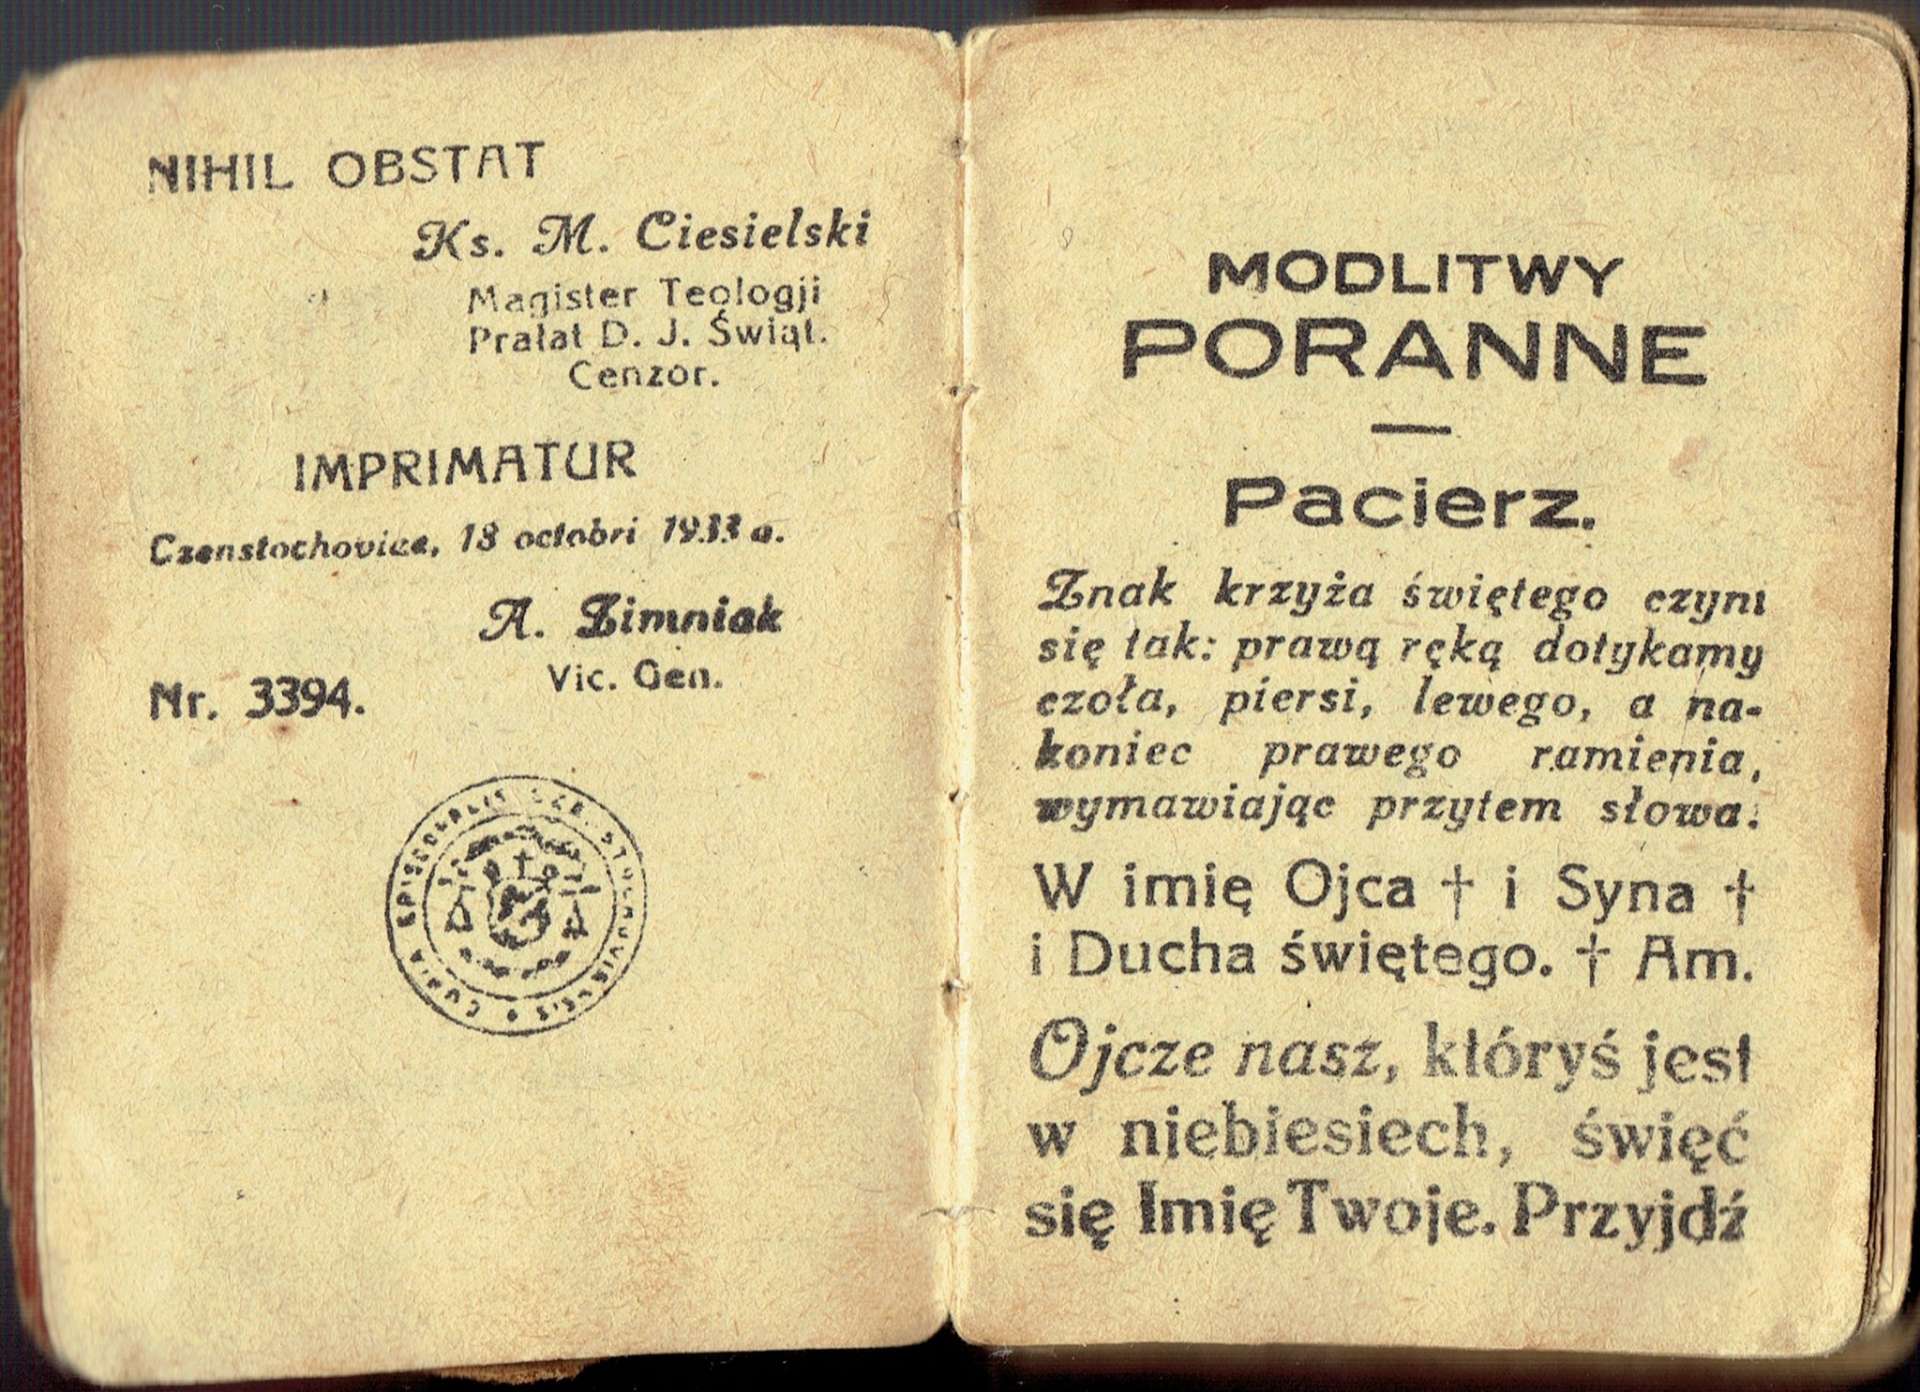 NIHIL OBSTAT
Ks. M. Ciesielski
Magister Teologji
Prałat D. J. Świąt.
Cenzor.
IMPRIMATUR
Czenstochoviae, 18 octobri 1933 a.
A. Zimniak
Vic. Gen.
Nr. 3394.
CURIA EPISCOPALIS
MODLITWY
PORANNE
Pacierz.
Znak krzyża świętego czyni
się tak: prawą ręką dotykamy
czoła, piersi, lewego, a na-
koniec prawego ramienia,
wymawiając przytem słowa:
W imię Ojca † i Syna †
i Ducha świętego. † Am.
Ojcze nasz, któryś jest
w niebiesiech, święć
się Imię Twoje. Przyjdź